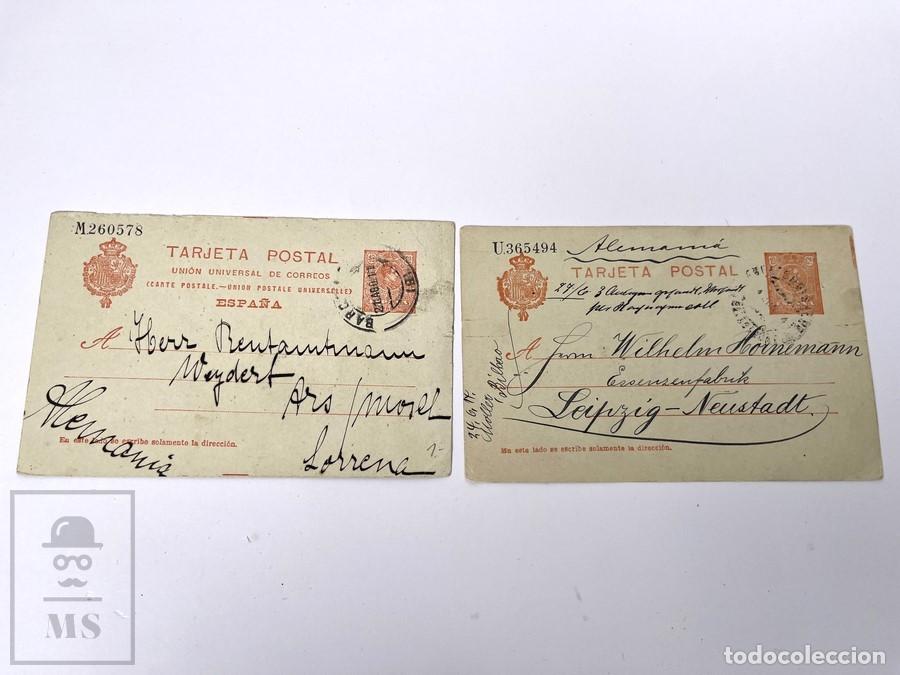 M.260578
TARJETA POSTAL
UNIÓN UNIVERSAL DE CORREOS
(CARTE POSTALE.—UNION POSTALE UNIVERSELLE)
ESPAÑA
BARC
A Herr Rentamtmann
Weydert
Ars /Mosel
Lorrena
Alemania
En este lado se escribe solamente la dirección.
U.365494
Alemania
TARJETA POSTAL
27/6 3
per
A Herrn Wilhelm Hörnemann
Essenzenfabrik
Leipzig-Neustadt.
24.6.14
Moller Bilbao
Bilbao
En este lado se escribe solamente la dirección.
MS
todocoleccion